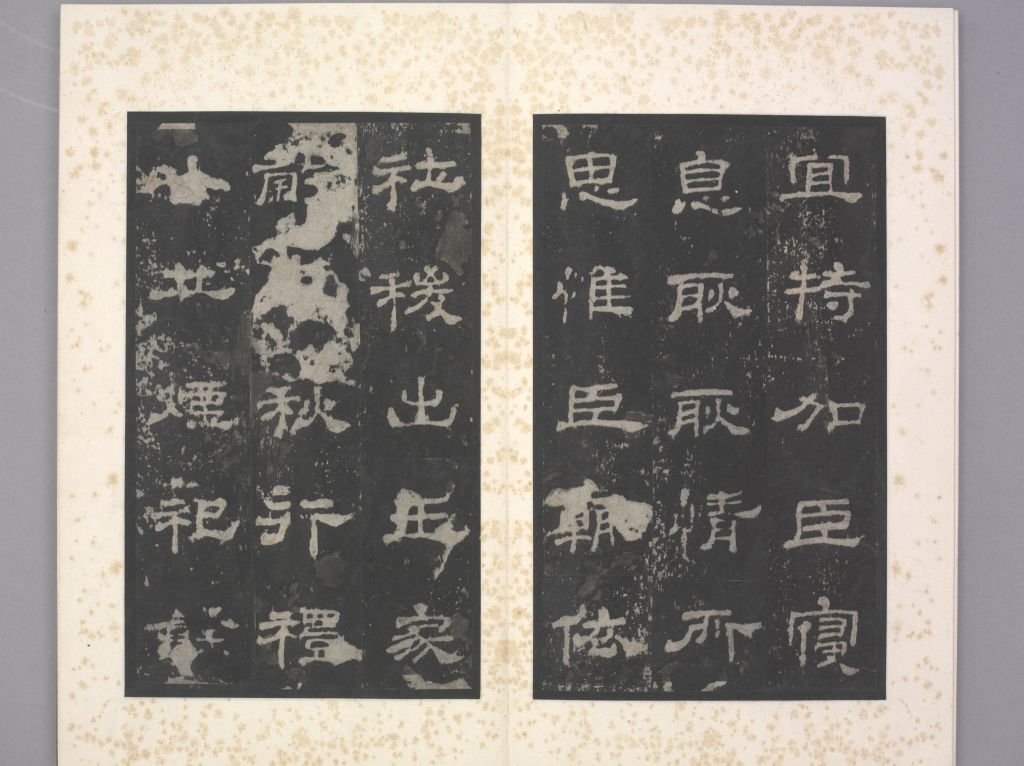 宜特加臣寑
息耿耿情所
思惟臣輒依
社稷出王家
秋行禮
以共煙祀